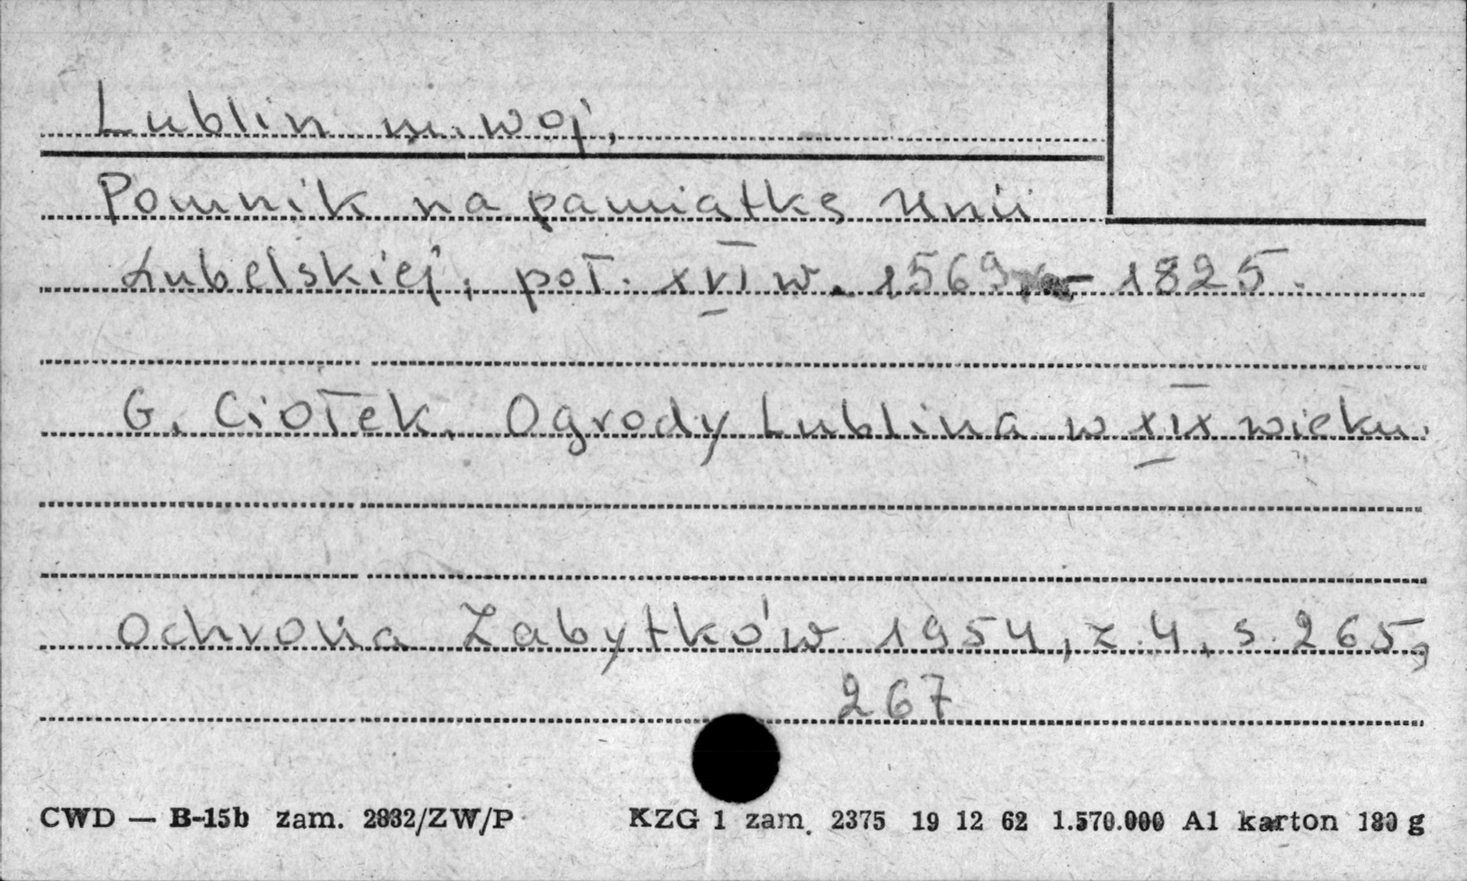 Lublin m. woj.
Pomnik na pamiątkę Unii
Lubelskiej, poł. XVI w. 1569 - 1825.
G. Ciołek. Ogrody Lublina w XIX wieku.
Ochrona Zabytków 1954, z. 4, s. 265,
267
CWD — B-15b zam. 2832/ZW/P KZG 1 zam. 2375 19 12 62 1.570.000 A1 karton 180 g